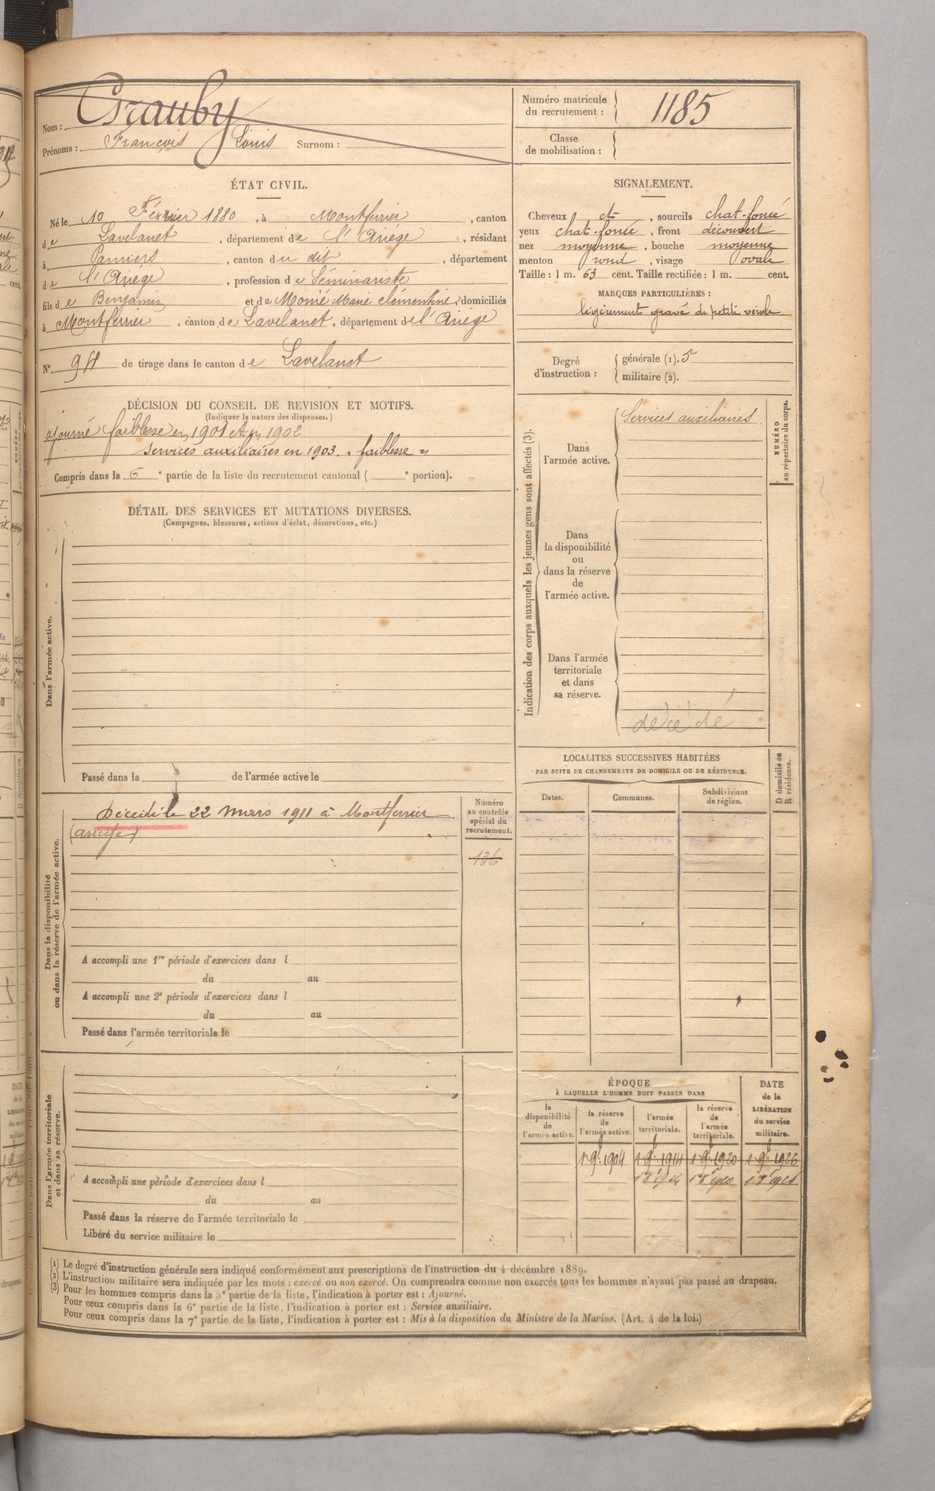 Nom : Grauby
Prénoms : François Louis Surnom :
Numéro matricule du recrutement : 1185
Classe de mobilisation :
ÉTAT CIVIL.
Né le 10 Février 1880, à Montferrier, canton
de Lavelanet, département de l'Ariége, résidant
à Pamiers, canton du dit, département
de l'Ariége, profession de Séminariste
fils de Benjamin et de Marie Clémentine, domiciliés
à Montferrier, canton de Lavelanet, département de l'Ariége
N° de tirage dans le canton de Lavelanet
SIGNALEMENT.
Cheveux et, sourcils chat-foncé
yeux chat-foncé, front découvert
nez moyenne, bouche moyenne
menton rond, visage ovale
Taille : 1 m. 63 cent. Taille rectifiée : 1 m. cent.
MARQUES PARTICULIÈRES :
légèrement gravé de petite vérole
Degré d'instruction : générale (1). 5
militaire (2).
DÉCISION DU CONSEIL DE REVISION ET MOTIFS.
(Indiquer la nature des dispenses.)
ajourné faiblesse en 1901 et en 1902
Services auxiliaires en 1903. « faiblesse »
Compris dans la 6e partie de la liste du recrutement cantonal ( e portion).
DÉTAIL DES SERVICES ET MUTATIONS DIVERSES.
(Campagnes, blessures, actions d'éclat, décorations, etc.)
Dans l'armée active.
Passé dans la de l'armée active le
Indication des corps auxquels les jeunes gens sont affectés (3).
NUMÉRO au répertoire du corps.
Dans l'armée active.
Services auxiliaires
Dans la disponibilité ou dans la réserve de l'armée active.
Dans l'armée territoriale et dans sa réserve.
décédé
Dans la disponibilité ou dans la réserve de l'armée active.
Décédé le 22 mars 1911 à Montferrier
(Ariège)
Numéro au contrôle spécial du recrutement.
136
A accompli une 1re période d'exercices dans l
du au
A accompli une 2e période d'exercices dans l
du au
Passé dans l'armée territoriale le
LOCALITÉS SUCCESSIVES HABITÉES
PAR SUITE DE CHANGEMENTS DE DOMICILE OU DE RÉSIDENCE.
D domicile ou R résidence.
Dates. Communes. Subdivisions de région.
Dans l'armée territoriale et dans sa réserve.
A accompli une période d'exercices dans l
du au
Passé dans la réserve de l'armée territoriale le
Libéré du service militaire le
ÉPOQUE
À LAQUELLE L'HOMME DOIT PASSER DANS
DATE de la LIBÉRATION du service militaire.
la disponibilité de l'armée active. la réserve de l'armée active. l'armée territoriale. la réserve de l'armée territoriale.
1 9e 1904 1 9e 1914 1 9e 1920 1 9e 1926
(1) Le degré d'instruction générale sera indiqué conformément aux prescriptions de l'instruction du 4 décembre 1889.
(2) L'instruction militaire sera indiquée par les mots : exercé ou non exercé. On comprendra comme non exercés tous les hommes n'ayant pas passé au drapeau.
(3) Pour les hommes compris dans la 5e partie de la liste, l'indication à porter est : Ajourné.
Pour ceux compris dans la 6e partie de la liste, l'indication à porter est : Service auxiliaire.
Pour ceux compris dans la 7e partie de la liste, l'indication à porter est : Mis à la disposition du Ministre de la Marine. (Art. 4 de la loi.)